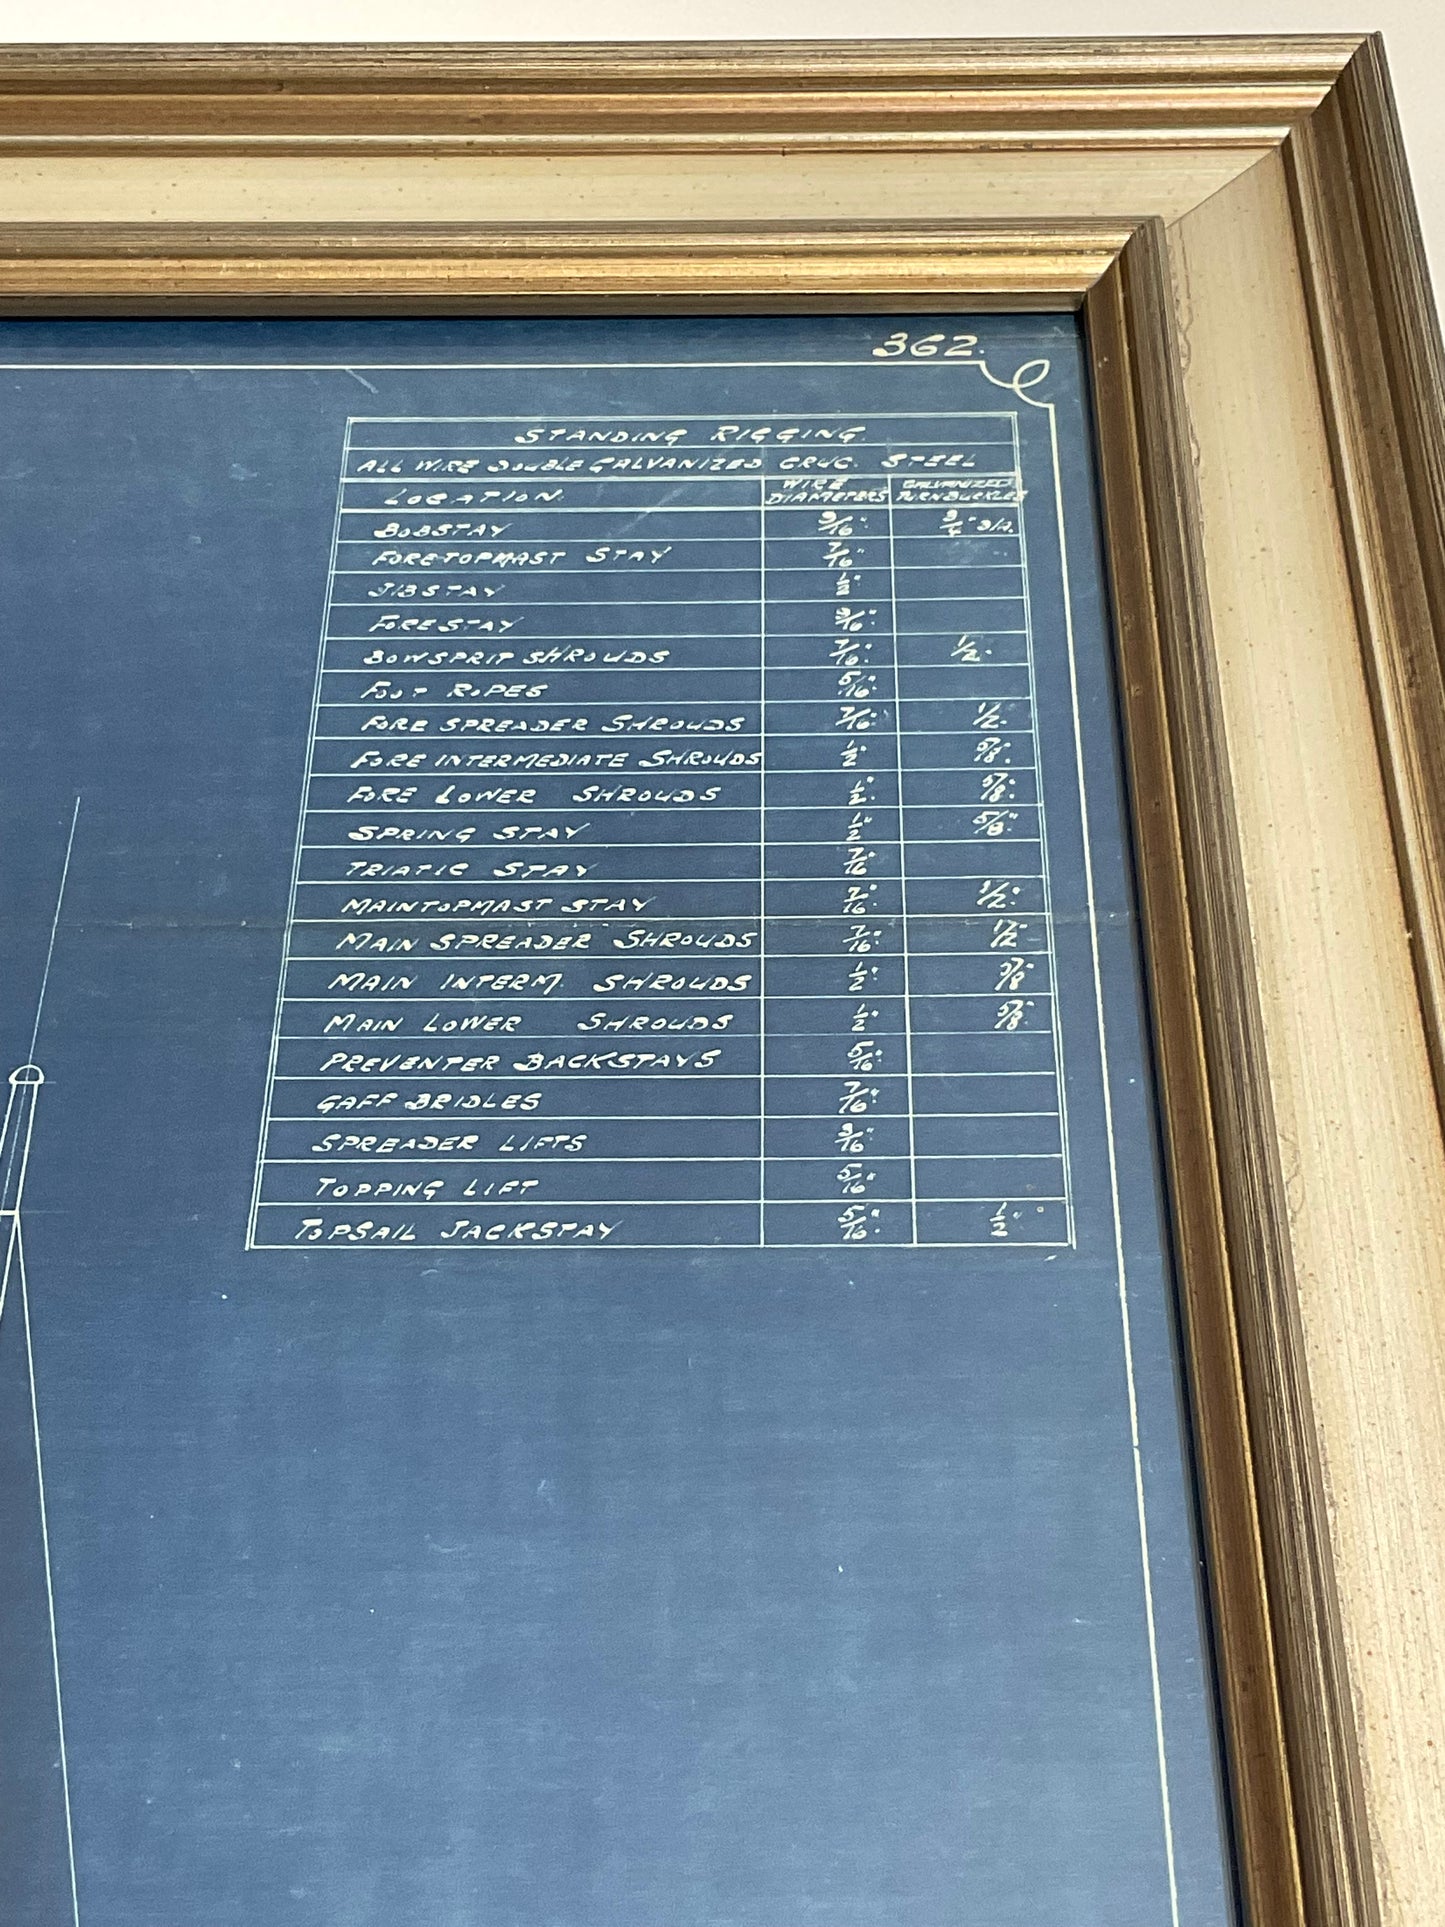 362.
STANDING RIGGING.
ALL WIRE DOUBLE GALVANIZED CRUC. STEEL
LOCATION. WIRE DIAMETERS GALVANIZED TURNBUCKLES
BOBSTAY 9/16" 3/4" DIA.
FORETOPMAST STAY 7/16"
JIBSTAY 1/2"
FORESTAY 9/16"
BOWSPRIT SHROUDS 7/16" 1/2"
FOOT ROPES 5/16"
FORE SPREADER SHROUDS 7/16" 1/2"
FORE INTERMEDIATE SHROUDS 1/2" 5/8"
FORE LOWER SHROUDS 1/2" 5/8"
SPRING STAY 1/2" 5/8"
TRIATIC STAY 7/16"
MAINTOPMAST STAY 7/16" 1/2"
MAIN SPREADER SHROUDS 7/16" 1/2"
MAIN INTERM. SHROUDS 1/2" 5/8"
MAIN LOWER SHROUDS 1/2" 5/8"
PREVENTER BACKSTAYS 5/16"
GAFF BRIDLES 7/16"
SPREADER LIFTS
TOPPING LIFT 5/16"
TOPSAIL JACKSTAY 5/16" 1/2"